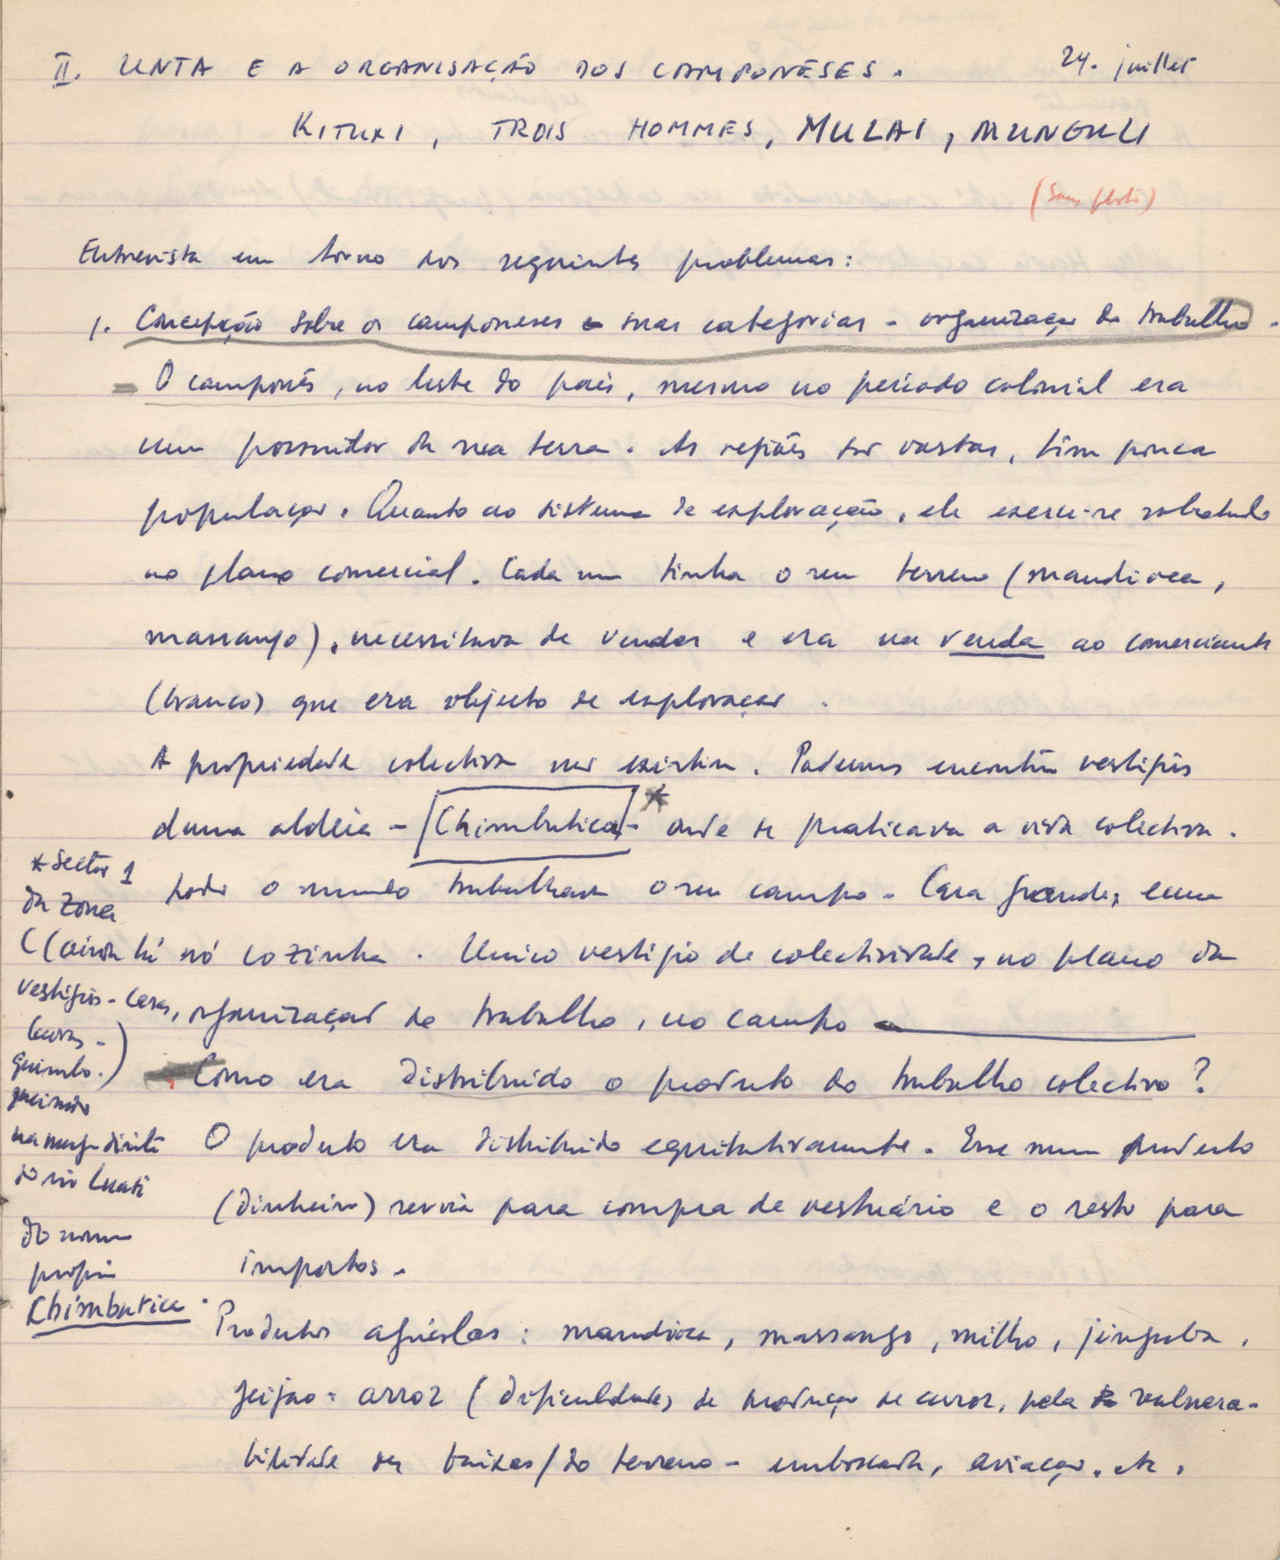 II. UNTA E A ORGANISAÇÃO DOS CAMPONESES.
24. juillet
KITUXI, TROIS HOMMES, MULAI, MUNGULI
(Sans photo)
Entrevista em torno dos seguintes problemas:
1. Concepção sobre os camponeses e suas categorias - organização do trabalho.
O camponês, no leste do país, mesmo no período colonial era
um possuidor da sua terra. As regiões são vastas, têm pouca
população. Quanto ao sistema de exploração, ele exerce-se sobretudo
no plano comercial. Cada um tinha o seu terreno (mandioca,
massango), necessitava de vender e era na venda ao comerciante
(branco) que era objecto de exploração.
A propriedade colectiva não existia. Podemos encontrar vestígios
duma aldeia - [Chimbutica]* - onde se praticava a vida colectiva.
Todo o mundo trabalhava o seu campo. Casa grande, uma
só cozinha. Unico vestígio de colectividade, no plano da
organização do trabalho, no campo
Como era distribuído o produto do trabalho colectivo?
O produto era distribuído equitativamente. Esse produto
(dinheiro) servia para compra de vestuário e o resto para
impostos.
Produtos agrícolas: mandioca, massango, milho, jinguba,
feijão - arroz (dificuldades de produção de arroz, pela vulnera-
bilidade das baixas/do terreno - emboscada, aviação, etc,
* Sector 1
da Zona
C (ainda há
vestígios - casas,
lavras -
quimbo.)
na margem direita
do rio Luati
do nome
próprio
Chimbutica.